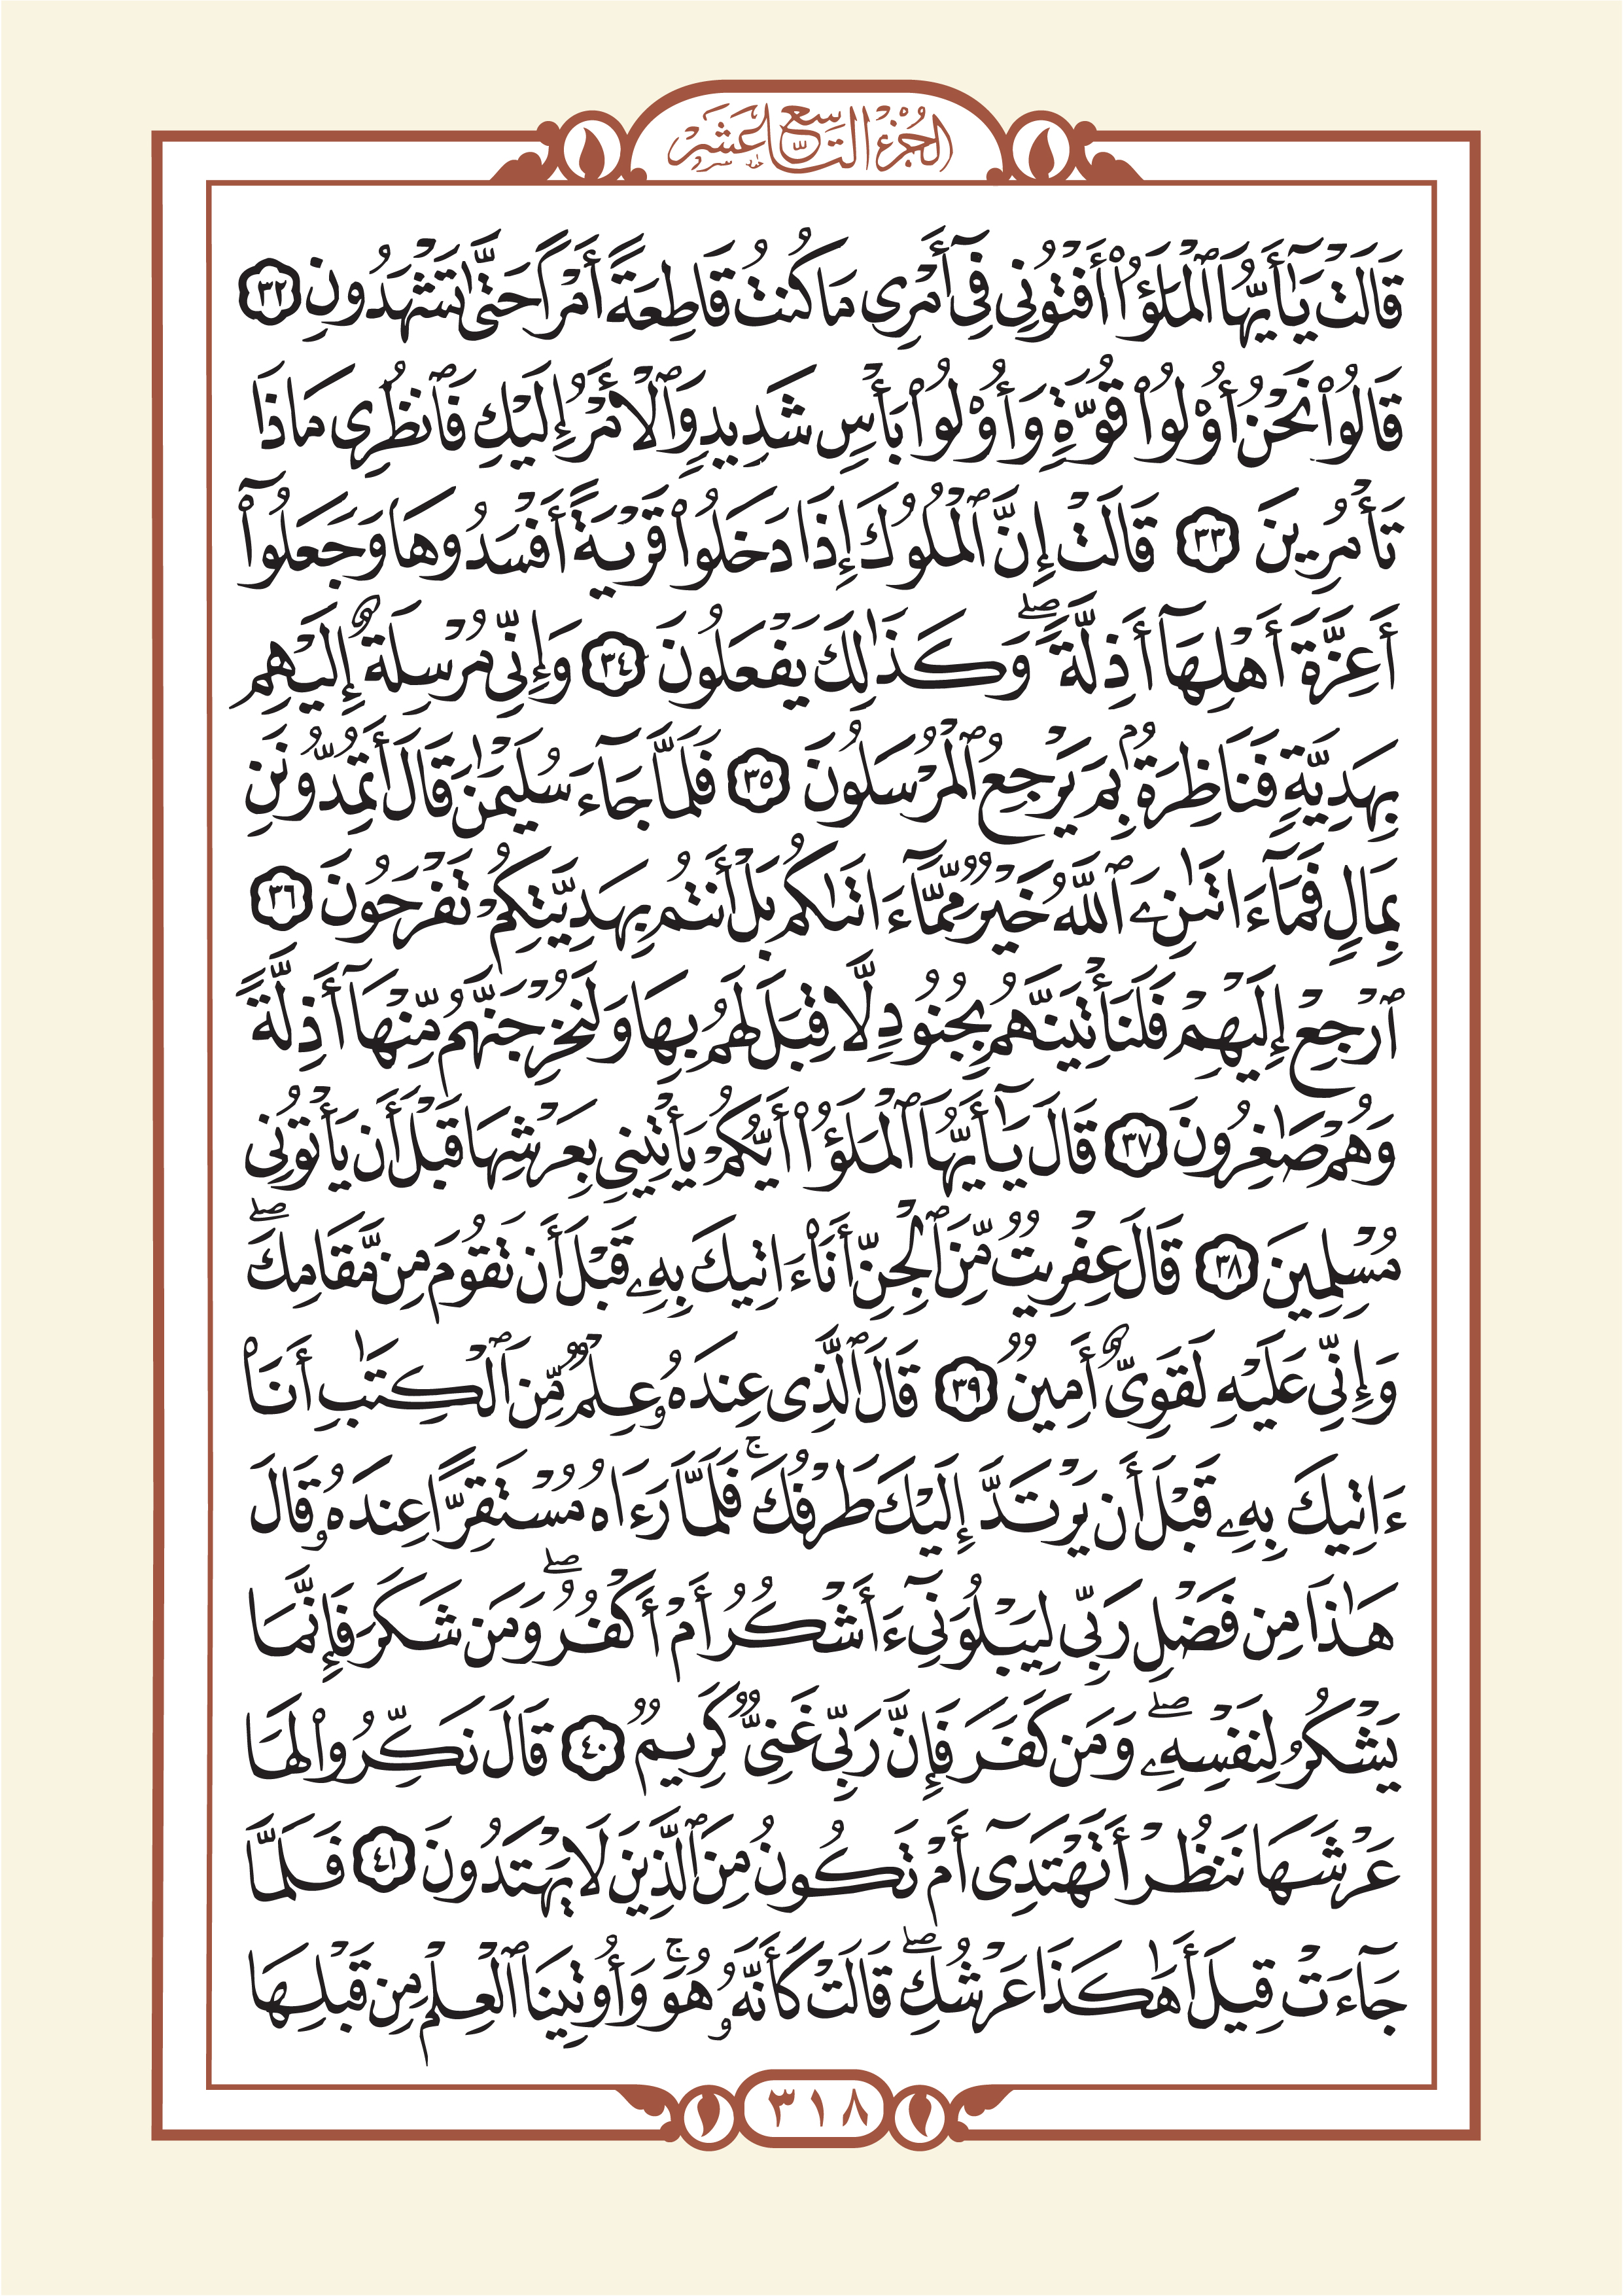 الجزء التاسع عشر
قَالَتْ يَٰٓأَيُّهَا ٱلْمَلَؤُا۟ أَفْتُونِى فِىٓ أَمْرِى مَا كُنتُ قَاطِعَةً أَمْرًا حَتَّىٰ تَشْهَدُونِ ٣٢
قَالُوا۟ نَحْنُ أُو۟لُوا۟ قُوَّةٍ وَأُو۟لُوا۟ بَأْسٍ شَدِيدٍ وَٱلْأَمْرُ إِلَيْكِ فَٱنظُرِى مَاذَا
تَأْمُرِينَ ٣٣ قَالَتْ إِنَّ ٱلْمُلُوكَ إِذَا دَخَلُوا۟ قَرْيَةً أَفْسَدُوهَا وَجَعَلُوٓا۟
أَعِزَّةَ أَهْلِهَآ أَذِلَّةً ۖ وَكَذَٰلِكَ يَفْعَلُونَ ٣٤ وَإِنِّى مُرْسِلَةٌ إِلَيْهِم
بِهَدِيَّةٍ فَنَاظِرَةٌۢ بِمَ يَرْجِعُ ٱلْمُرْسَلُونَ ٣٥ فَلَمَّا جَآءَ سُلَيْمَٰنَ قَالَ أَتُمِدُّونَنِ
بِمَالٍ فَمَآ ءَاتَىٰنِۦَ ٱللَّهُ خَيْرٌ مِّمَّآ ءَاتَىٰكُم بَلْ أَنتُم بِهَدِيَّتِكُمْ تَفْرَحُونَ ٣٦
ٱرْجِعْ إِلَيْهِمْ فَلَنَأْتِيَنَّهُم بِجُنُودٍ لَّا قِبَلَ لَهُم بِهَا وَلَنُخْرِجَنَّهُم مِّنْهَآ أَذِلَّةً
وَهُمْ صَٰغِرُونَ ٣٧ قَالَ يَٰٓأَيُّهَا ٱلْمَلَؤُا۟ أَيُّكُمْ يَأْتِينِى بِعَرْشِهَا قَبْلَ أَن يَأْتُونِى
مُسْلِمِينَ ٣٨ قَالَ عِفْرِيتٌ مِّنَ ٱلْجِنِّ أَنَا۠ ءَاتِيكَ بِهِۦ قَبْلَ أَن تَقُومَ مِن مَّقَامِكَ ۖ
وَإِنِّى عَلَيْهِ لَقَوِىٌّ أَمِينٌ ٣٩ قَالَ ٱلَّذِى عِندَهُۥ عِلْمٌ مِّنَ ٱلْكِتَٰبِ أَنَا۠
ءَاتِيكَ بِهِۦ قَبْلَ أَن يَرْتَدَّ إِلَيْكَ طَرْفُكَ ۚ فَلَمَّا رَءَاهُ مُسْتَقِرًّا عِندَهُۥ قَالَ
هَٰذَا مِن فَضْلِ رَبِّى لِيَبْلُوَنِىٓ ءَأَشْكُرُ أَمْ أَكْفُرُ ۖ وَمَن شَكَرَ فَإِنَّمَا
يَشْكُرُ لِنَفْسِهِۦ ۖ وَمَن كَفَرَ فَإِنَّ رَبِّى غَنِىٌّ كَرِيمٌ ٤٠ قَالَ نَكِّرُوا۟ لَهَا
عَرْشَهَا نَنظُرْ أَتَهْتَدِىٓ أَمْ تَكُونُ مِنَ ٱلَّذِينَ لَا يَهْتَدُونَ ٤١ فَلَمَّا
جَآءَتْ قِيلَ أَهَٰكَذَا عَرْشُكِ ۖ قَالَتْ كَأَنَّهُۥ هُوَ ۚ وَأُوتِينَا ٱلْعِلْمَ مِن قَبْلِهَا
٣١٨